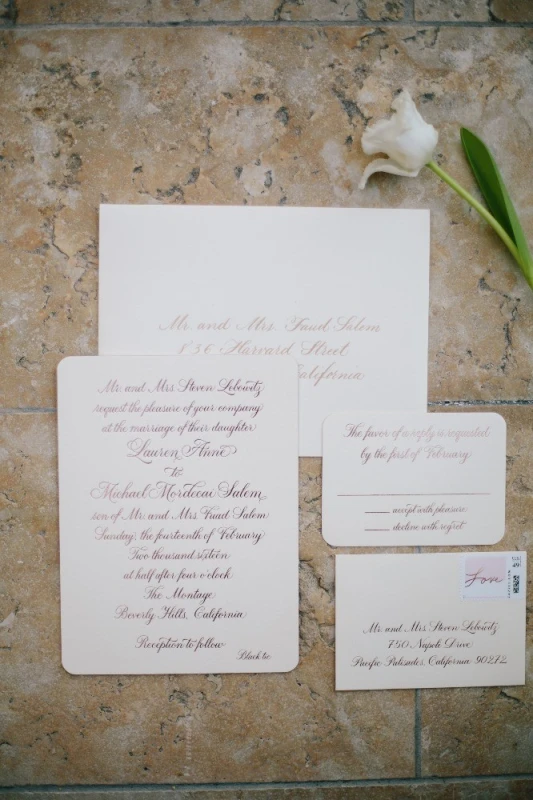 Mr. and Mrs. Fuad Salem
836 Harvard Street
California
Mr. and Mrs Steven Lebowitz
request the pleasure of your company
at the marriage of their daughter
Lauren Anne
to
Michael Mordecai Salem
son of Mr. and Mrs Fuad Salem
Sunday, the fourteenth of February
Two thousand sixteen
at half after four o'clock
The Montage
Beverly Hills, California
Reception to follow
Black tie
The favor of a reply is requested
by the first of February
accept with pleasure
decline with regret
Love
Mr. and Mrs Steven Lebowitz
750 Napoli Drive
Pacific Palisades, California 90272